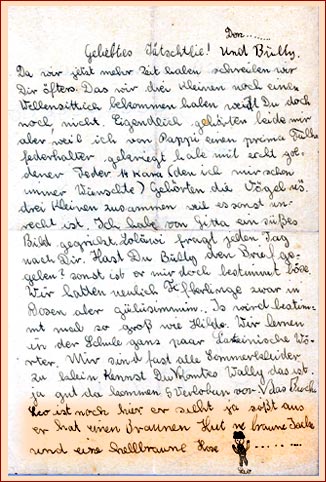 Don.......
Geliebtes Tütschtlie! Und Bully.
Da wir jetzt mehr Zeit haben schreiben wir
Dir öfters. Das wir drei kleinen noch einen
Wellensittich bekommen haben weißt Du doch
noch nicht. Eigendlich gehörten beide mir
aber weil ich von Pappi einen prima Füll=
federhalter gekriegt habe mit echt gol=
dener Feder 14 Kara (den ich mir schon
immer Wünschte) Gehörten die Vögel
drei kleinen zusammen weil es sonst un=
recht ist. Ich habe von Gitta ein süßes
Bild gegrücht. fragt jeden Tag
nach Dir. Hast Du Bully den Brief ge=
geben? sonst ist er mir doch bestimmt böse.
Wir hatten neulich zwar in
Dosen aber Es wird bestim=
mt mal so groß wie Hilde. Wir lernen
in der Schule ganz paar Lateinische Wö=
rter. Mir sind fast alle Sommerkleider
zu klein. Kennst Du Wally das ist
ja gut da kommen 5 Verloben vor. das
Leo ist noch hier er sieht ja süß aus
er hat einen Braunen Hut ne braune Jacke
und eine hellbraune Hose